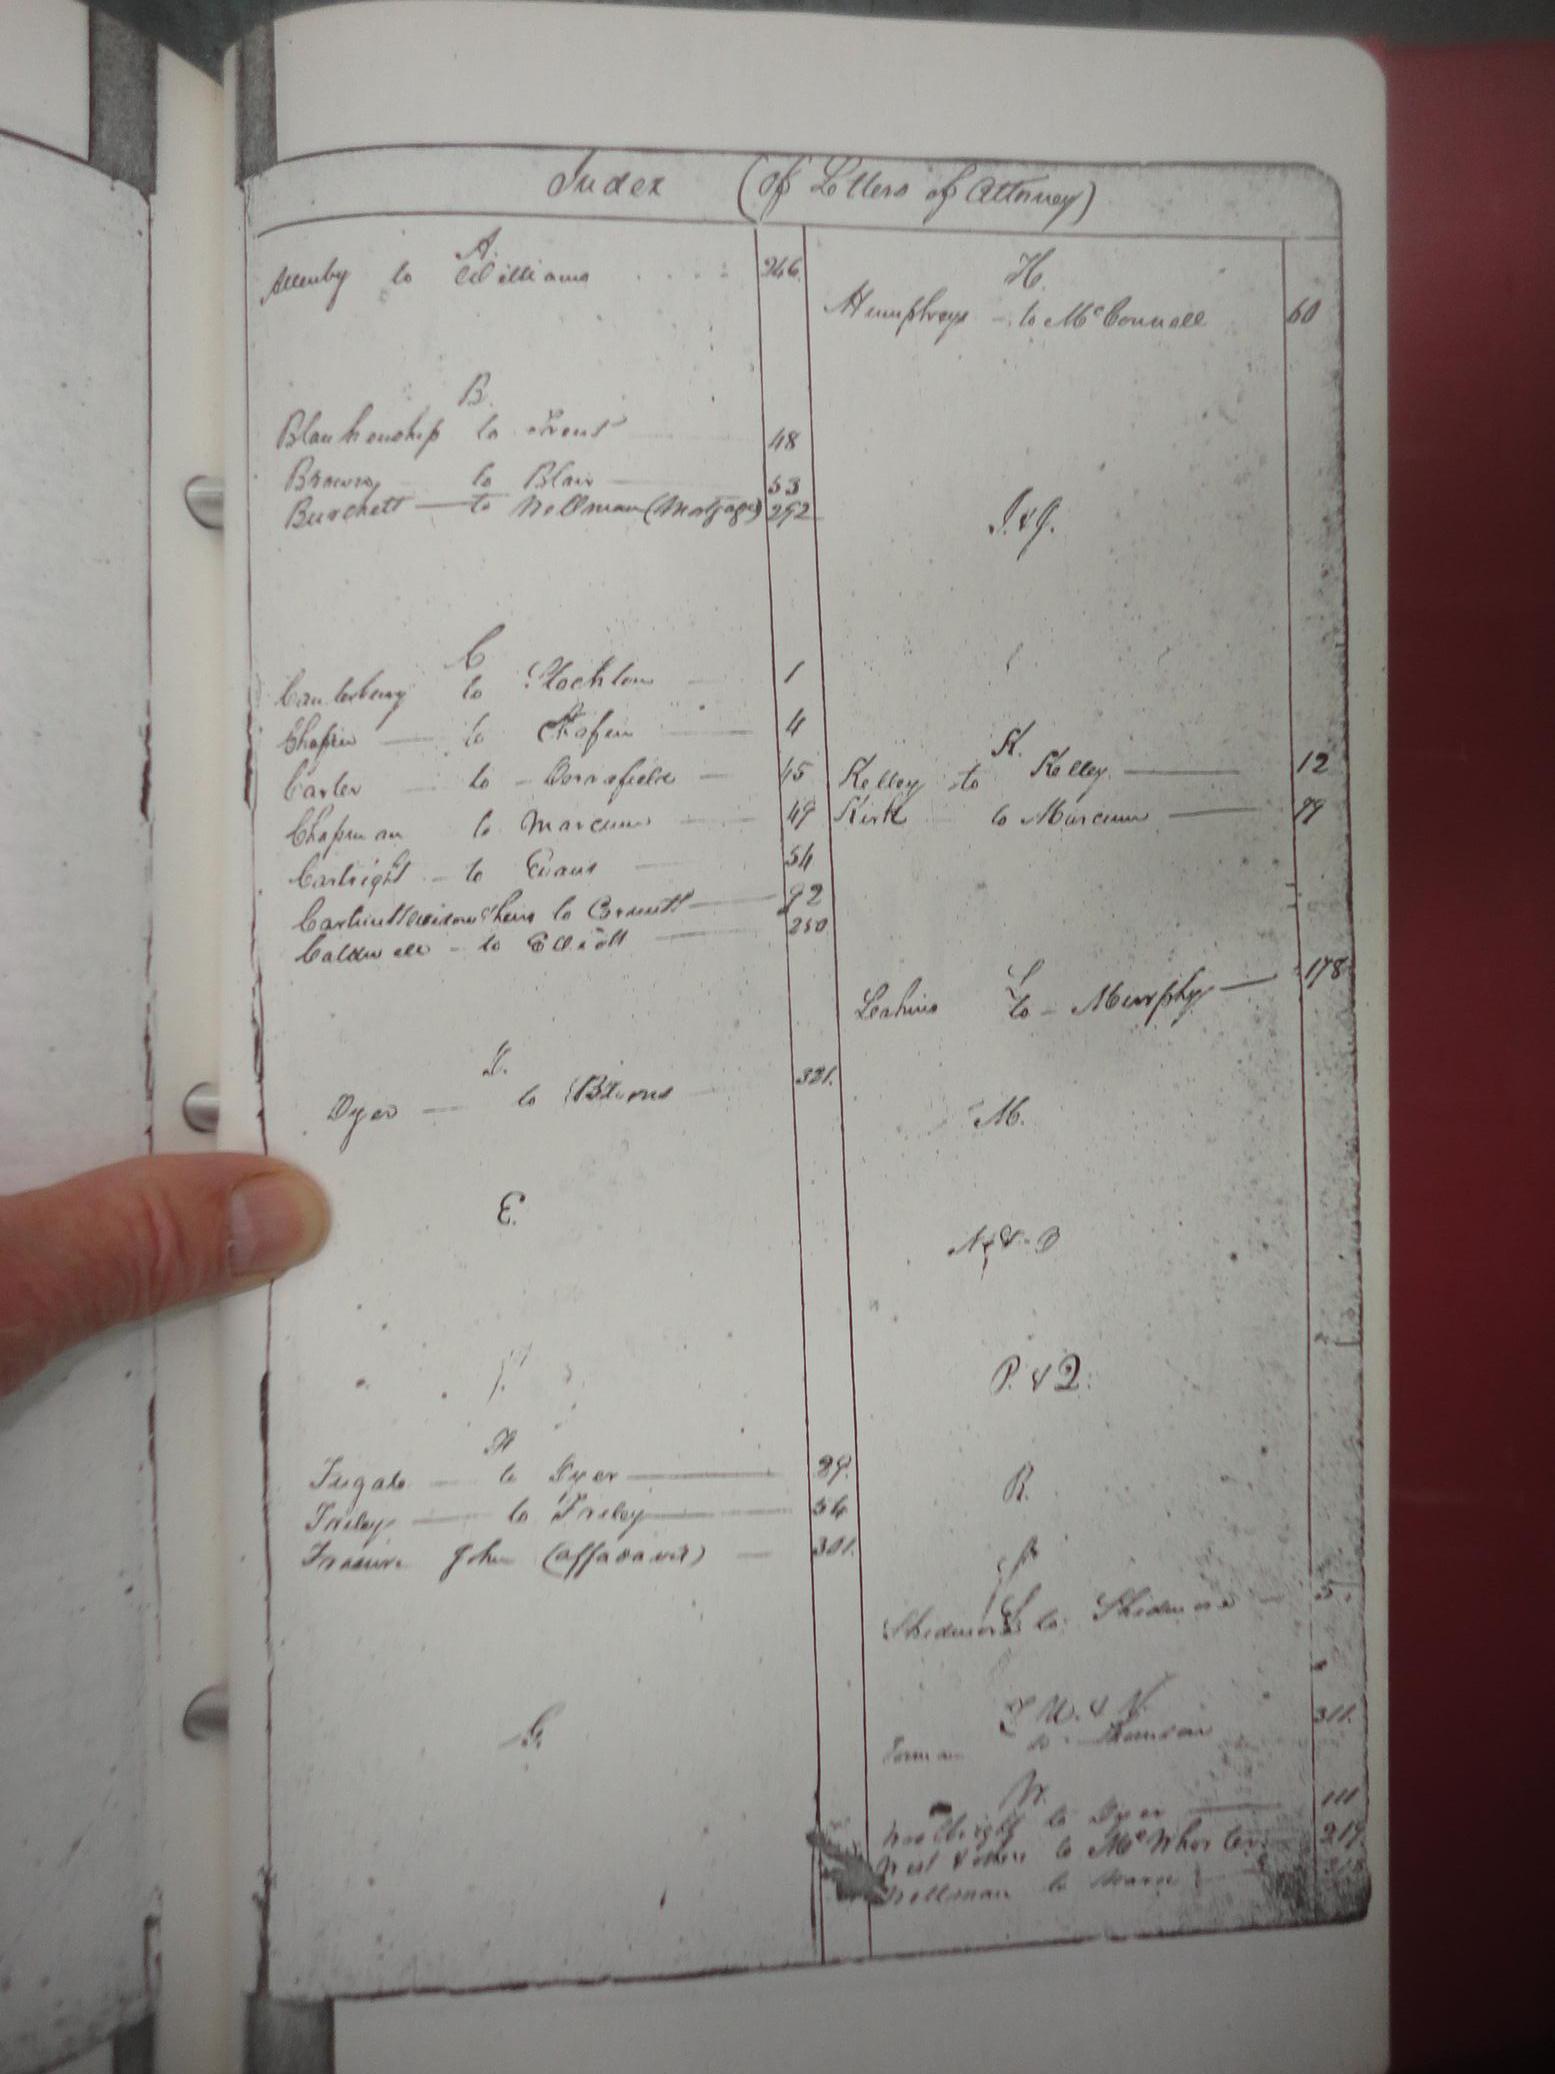 Index (of Letters of Attorney)
A.
Allenby to Williams 246
B.
Blankenship to 48
Browns to Blair 53
Burchett to Wellman (Mortgage) 292
C
Canterbury to Stockton 1
Chapin to Chapin 4
Carter to 45
Chapman to Marcum 49
Cartright to Evans 54
to 92
Caldwell to Elliott 250
D.
Dyer to Burns 321.
E.
F
Fugate to Dyer 89.
Friley to Friley 54
John (affadavid) 301.
G.
H.
Humphreys to McConnell 60
I & J.
K.
Kelley to Kelley 12
Kirk to Marcum 99
L
Lakins to Murphy 178
M.
N & O
P. & Q.
R.
S
Skidmore to Skidmore 5
T U. & V.
to 311.
W.
to Dyer 111
West & others to McWhorter 219
Wellman to